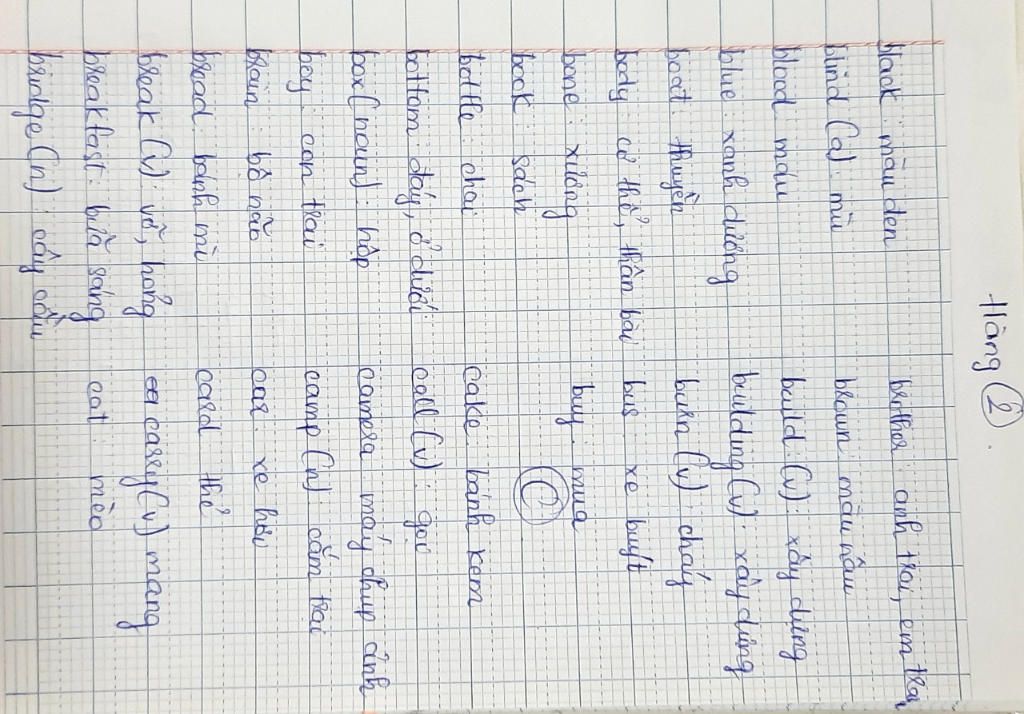 Hàng 2.
black : màu đen
blind (a) : mù
blood máu
blue : xanh dương
boat : thuyền
body cơ thể, thân bài
bone : xương
book : sách
bottle : chai
bottom đáy, ở dưới
box (noun) : hộp
boy : con trai
brain : bộ não
bread : bánh mì
break (v) : vỡ, hỏng
breakfast : bữa sáng
bridge (n) : cây cầu
brother : anh trai, em trai
brown màu nâu
build : (v) : xây dựng
building (v) : xây dựng
burn (v) : cháy
bus xe buýt
buy : mua
C
cake bánh kem
call (v) : gọi
camera máy chụp ảnh
camp (n) cắm trại
car xe hơi
card thẻ
carry (v) mang
cat mèo